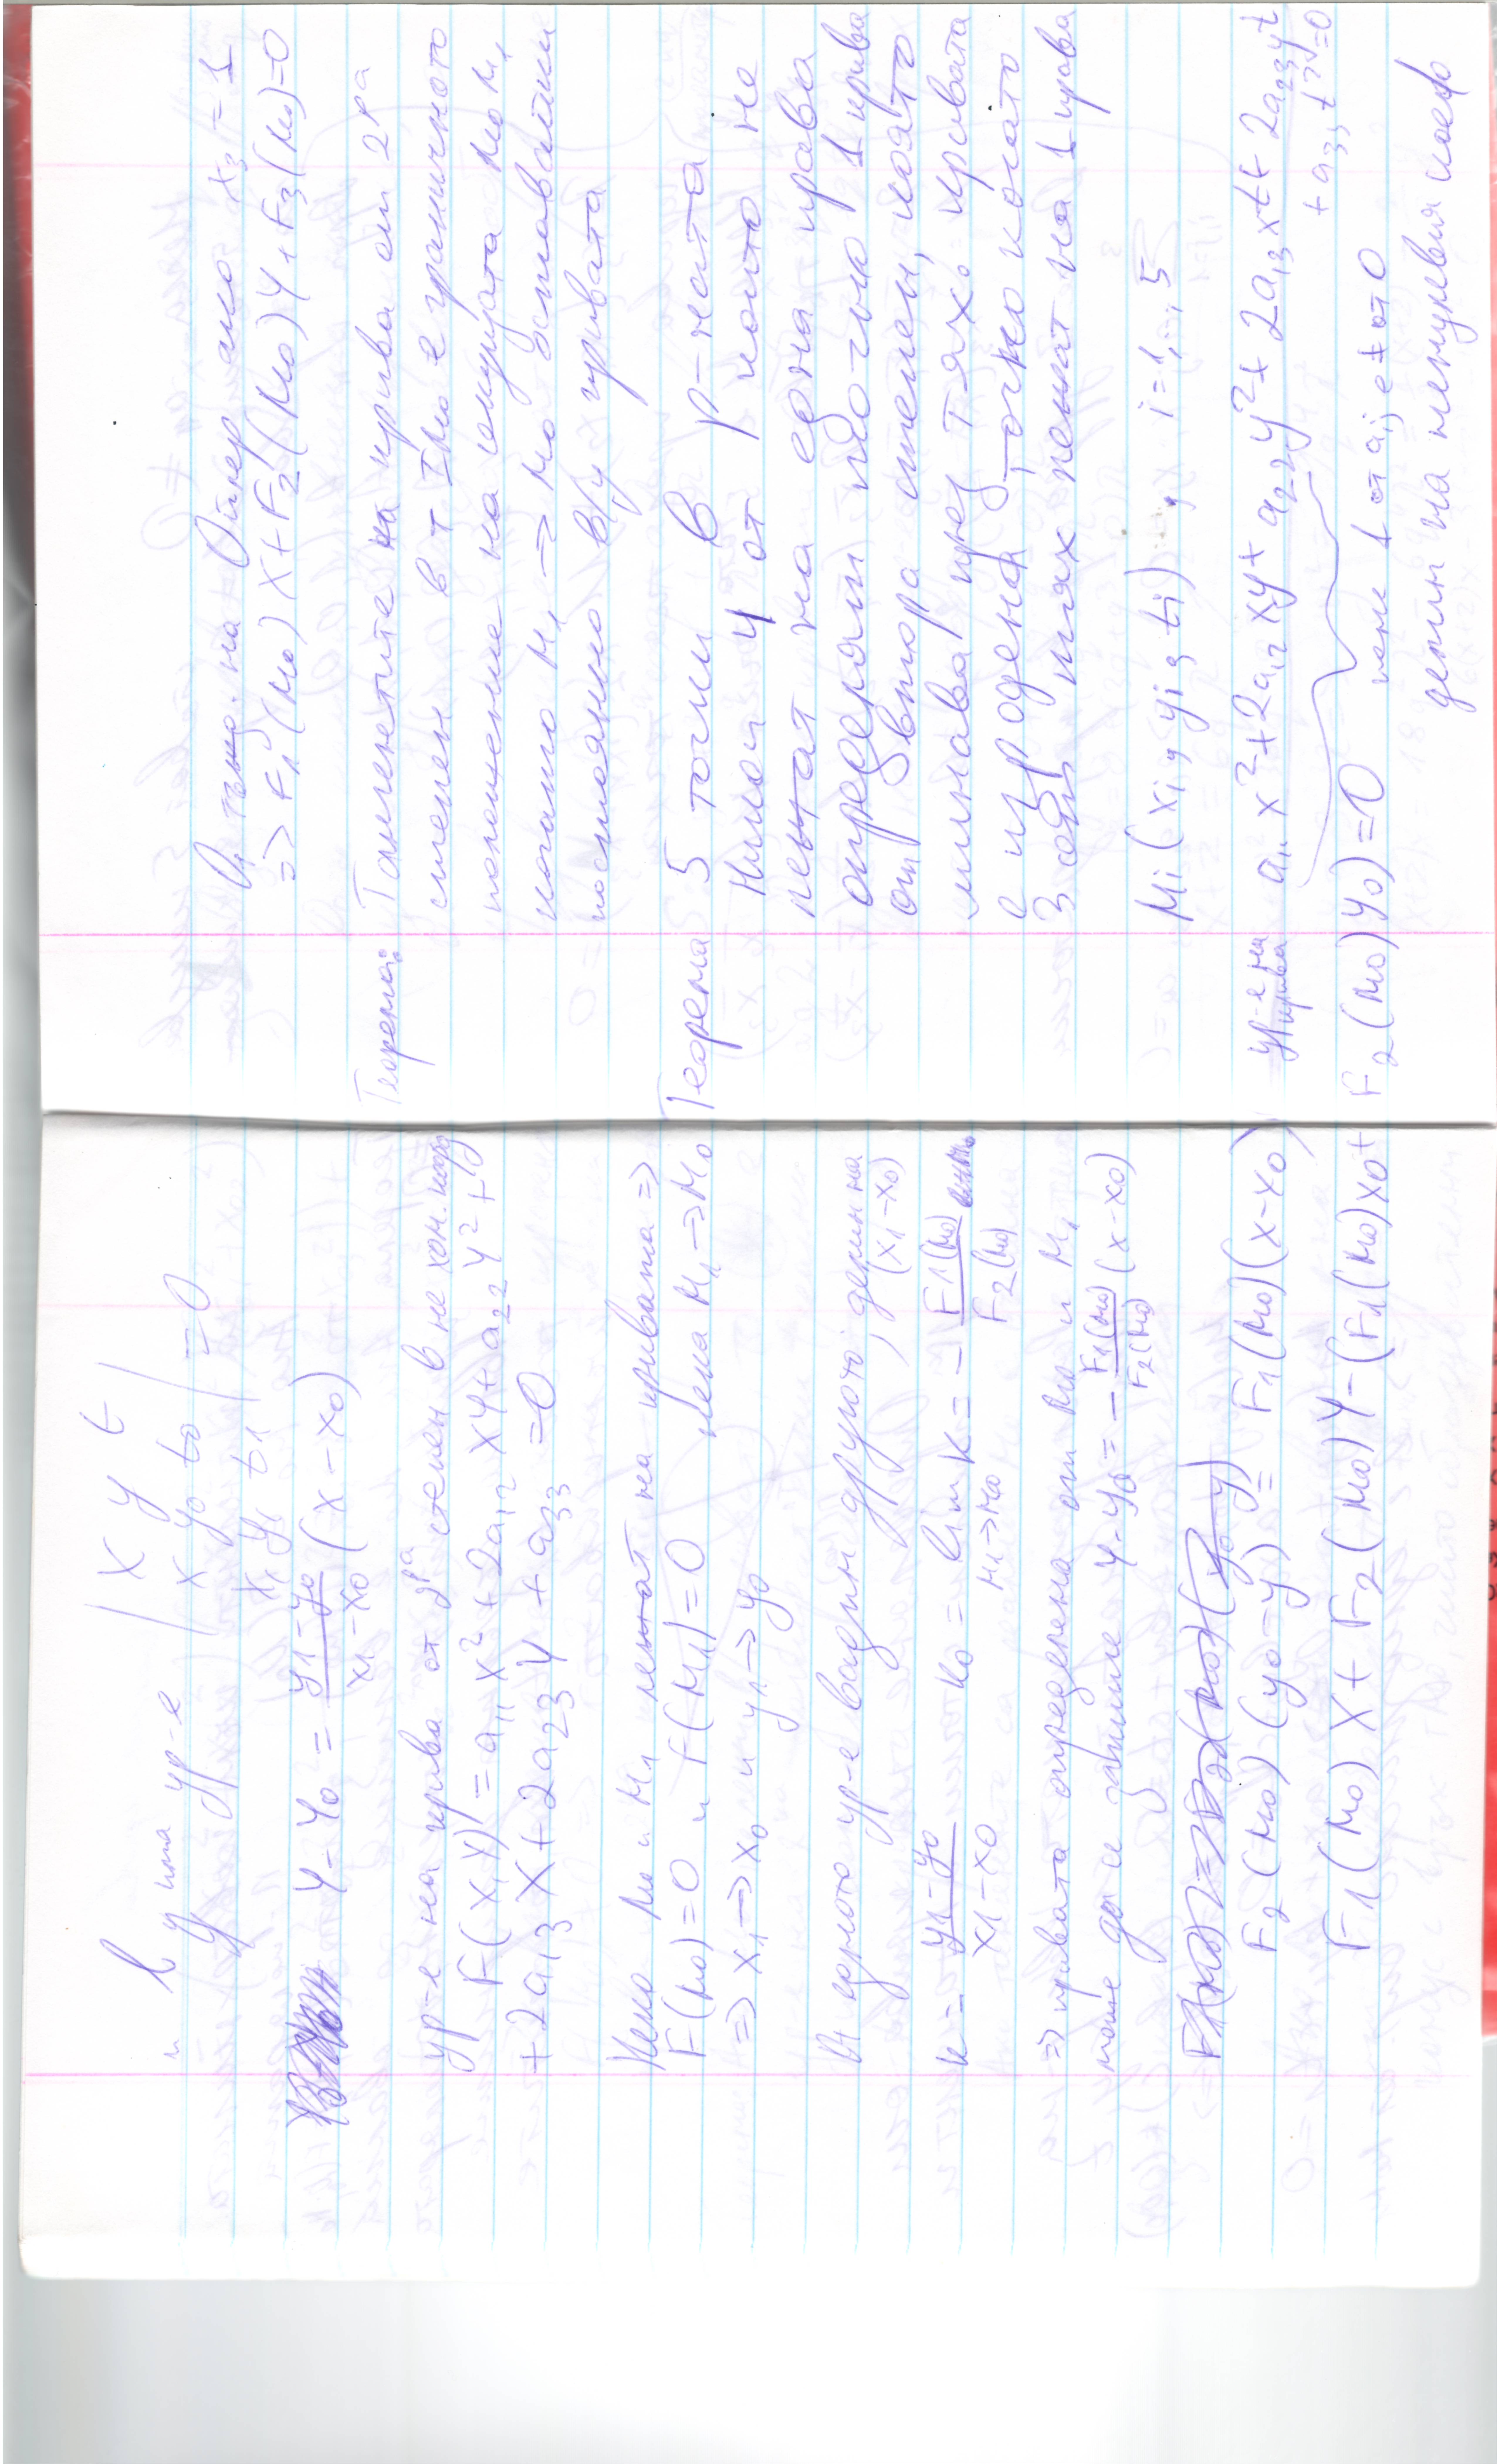 и има
ур-е | x y t |
| x₀ y₀ t₀ | = 0
x₁ y₁ t₁
y - y₀ = (y₁ - y₀)/(x₁ - x₀) (x - x₀)
ур-е на крива от 2ра степен в не хом. коорд
F(x,y) = a₁₁x² + 2a₁₂xy + a₂₂y² +
+ 2a₁₃x + 2a₂₃y + a₃₃ = 0
Нека M₀ и M₁ лежат на кривата =>
F(M₀)=0 и F(M₁)=0 нека M₁ -> M₀
=> x₁ -> x₀ и y₁ -> y₀
ур-е вадим другото, делим на (x₁-x₀)
k = (y₁-y₀)/(x₁-x₀) k₀ = lim k = - F₁(M₀)/F₂(M₀)
M₁->M₀
=> определена от M₀ и M₁
може да се запише y-y₀ = - F₁(M₀)/F₂(M₀) (x-x₀)
F₂(M₀)(y₀-y) = F₁(M₀)(x-x₀)
F₁(M₀)x + F₂(M₀)y - (F₁(M₀)x₀+
F₂(M₀)y₀) = 0
От тъжд. на Ойлер ако t₃ = 1
=> F₁(M₀)x + F₂(M₀)y + F₃(M₀)=0
Теорема: Тангентите на крива от 2ра
степен в т M₀ е граничното
положение на секущата M₀M₁
когато M₁ -> M₀ оставайки
постоянно в/у кривата
Теорема 5 точки в р-ната
Никои 4 от които не
лежат на една права
определят точно 1 крива
от втора степен, която
минава през тях. Кривата
е изродена точно когато
3 от тях лежат на 1 права
Mi(xi, yi, ti), i=1,..,5
ур-е на
крива a₁₁x²+2a₁₂xy+a₂₂y²+2a₁₃xt+2a₂₃yt
+a₃₃t²=0
поне 1 от aᵢⱼ е ≠ от 0
делим на ненулевия коеф